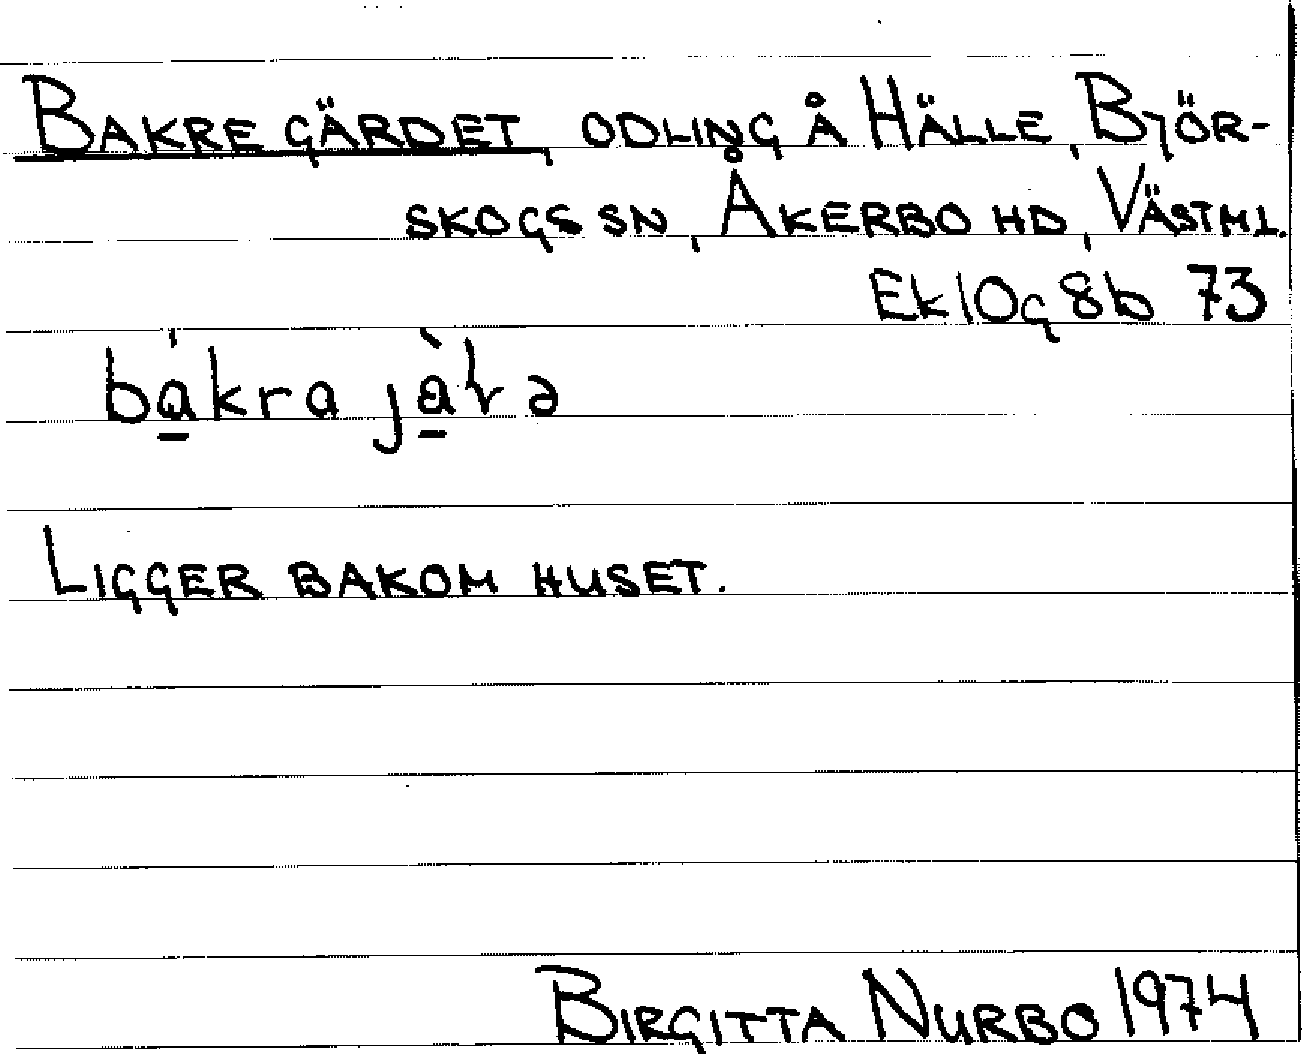 BAKRE GÄRDET, ODLING Å HÄLLE, BJÖR-
SKOGS SN, ÅKERBO HD, VÄSTML.
Ek 10g 8b 73
bákra
LIGGER BAKOM HUSET.
BIRGITTA NURBO 1974